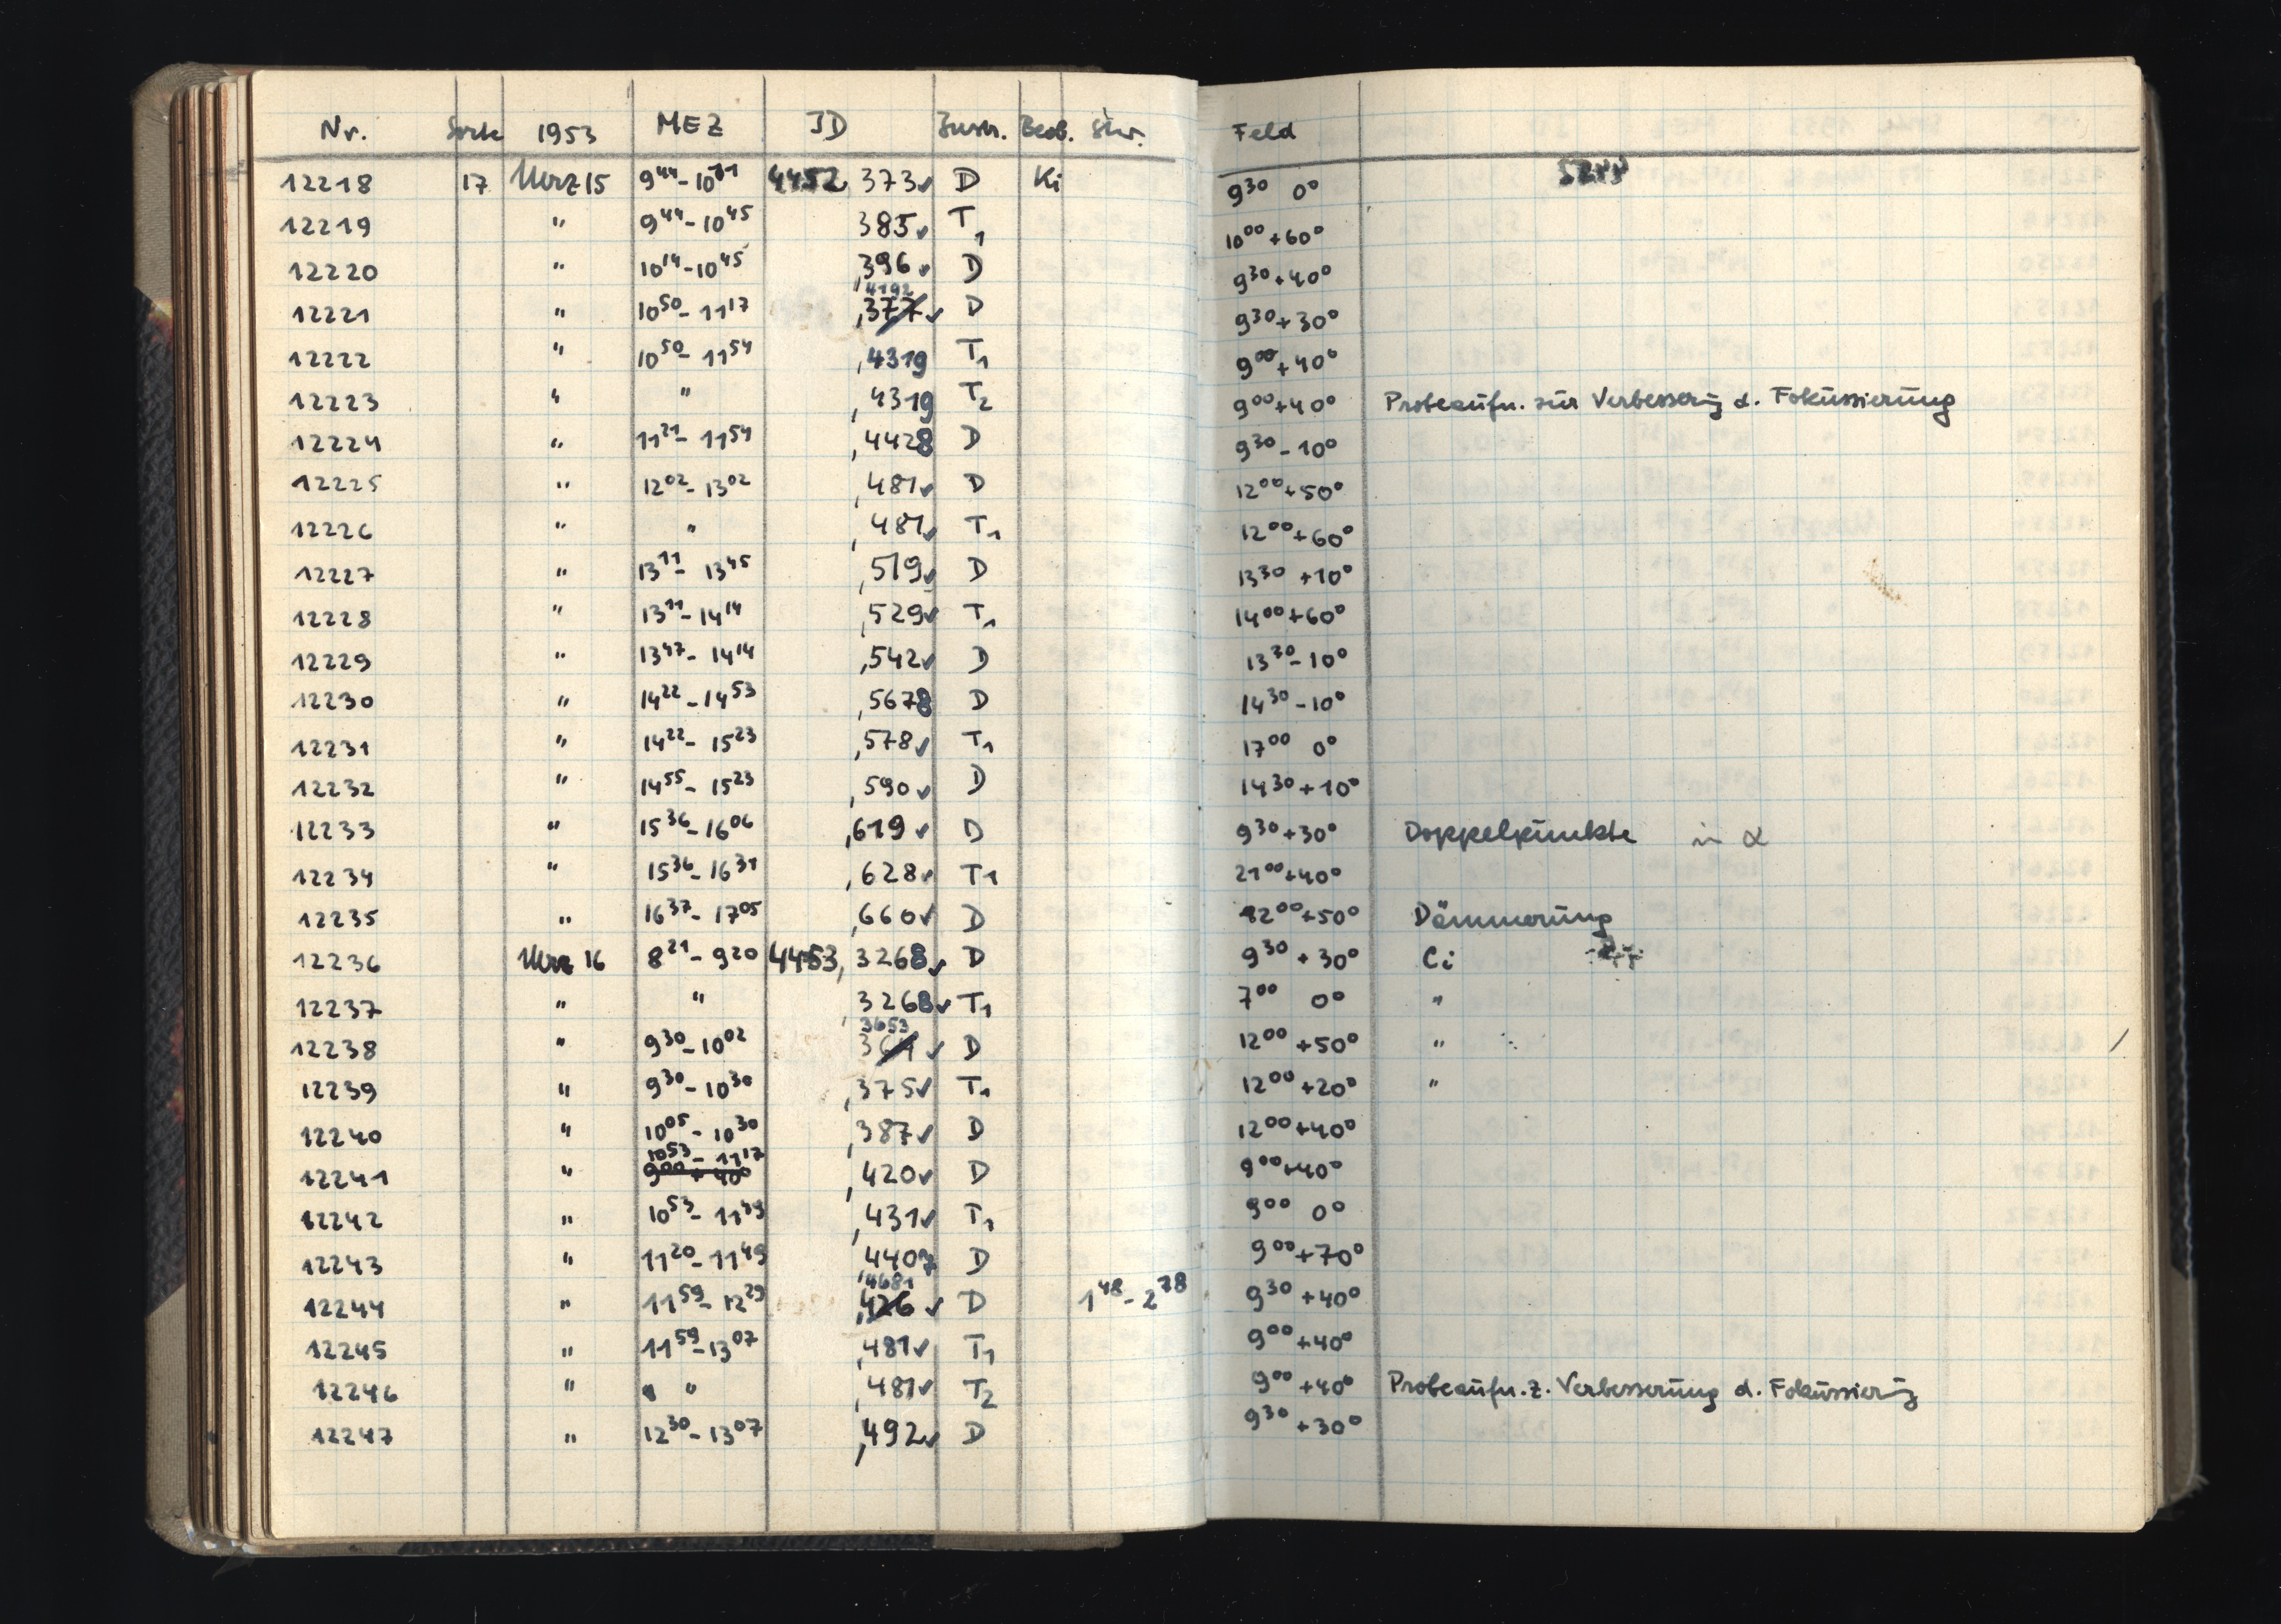 Nr. Sorte 1953 MEZ JD Instr. Beob. Stw. Feld
12218 17 März 15 9⁴⁴-10¹¹ 4452,373✓ D Ki 9³⁰ 0°
12219 " 9⁴⁴-10⁴⁵ 385✓ T₁ 10⁰⁰+60°
12220 " 10¹⁴-10⁴⁵ ,396✓ D 9³⁰+40°
12221 " 10⁵⁰-11¹⁷ ,4192 ,377✓ D 9³⁰+30°
12222 " 10⁵⁰-11⁵⁴ ,4319 T₁ 9⁰⁰+40°
12223 " " ,4319 T₂ 9⁰⁰+40° Probeaufn. zur Verbesserung d. Fokussierung
12224 " 11²¹-11⁵⁴ ,4428 D 9³⁰-10°
12225 " 12⁰²-13⁰² ,481✓ D 12⁰⁰+50°
12226 " " ,481✓ T₁ 12⁰⁰+60°
12227 " 13¹¹-13⁴⁵ ,519✓ D 13³⁰+10°
12228 " 13¹¹-14¹⁴ ,529✓ T₁ 14⁰⁰+60°
12229 " 13⁴⁷-14¹⁴ ,542✓ D 13³⁰-10°
12230 " 14²²-14⁵³ ,5678 D 14³⁰-10°
12231 " 14²²-15²³ ,578✓ T₁ 17⁰⁰ 0°
12232 " 14⁵⁵-15²³ ,590✓ D 14³⁰+10°
12233 " 15³⁶-16⁰⁶ ,619✓ D 9³⁰+30° Doppelpunkte in α
12234 " 15³⁶-16³¹ ,628✓ T₁ 21⁰⁰+40°
12235 " 16³⁷-17⁰⁵ ,660✓ D 12⁰⁰+50° Dämmerung
12236 März 16 8²¹-9²⁰ 4453,3268✓ D 9³⁰+30° Ci
12237 " " 3268✓ T₁ 7⁰⁰ 0° "
12238 " 9³⁰-10⁰² ,3653 ✓ D 12⁰⁰+50° "
12239 " 9³⁰-10³⁰ ,375✓ T₁ 12⁰⁰+20° "
12240 " 10⁰⁵-10³⁰ ,387✓ D 12⁰⁰+40°
12241 " 10⁵³-11¹⁷ 9⁰⁰+40° ,420✓ D 9⁰⁰+40°
12242 " 10⁵³-11⁴⁹ ,431✓ T₁ 9⁰⁰ 0°
12243 " 11²⁰-11⁴⁹ ,4407 D 9⁰⁰+70°
12244 " 11⁵⁹-12²⁹ ,4681 ,426✓ D 1⁴⁸-2¹⁸ 9³⁰+40°
12245 " 11⁵⁹-13⁰⁷ ,481✓ T₁ 9⁰⁰+40°
12246 " " " ,481✓ T₂ 9⁰⁰+40° Probeaufn. z. Verbesserung d. Fokussierung
12247 " 12³⁰-13⁰⁷ ,492✓ D 9³⁰+30°